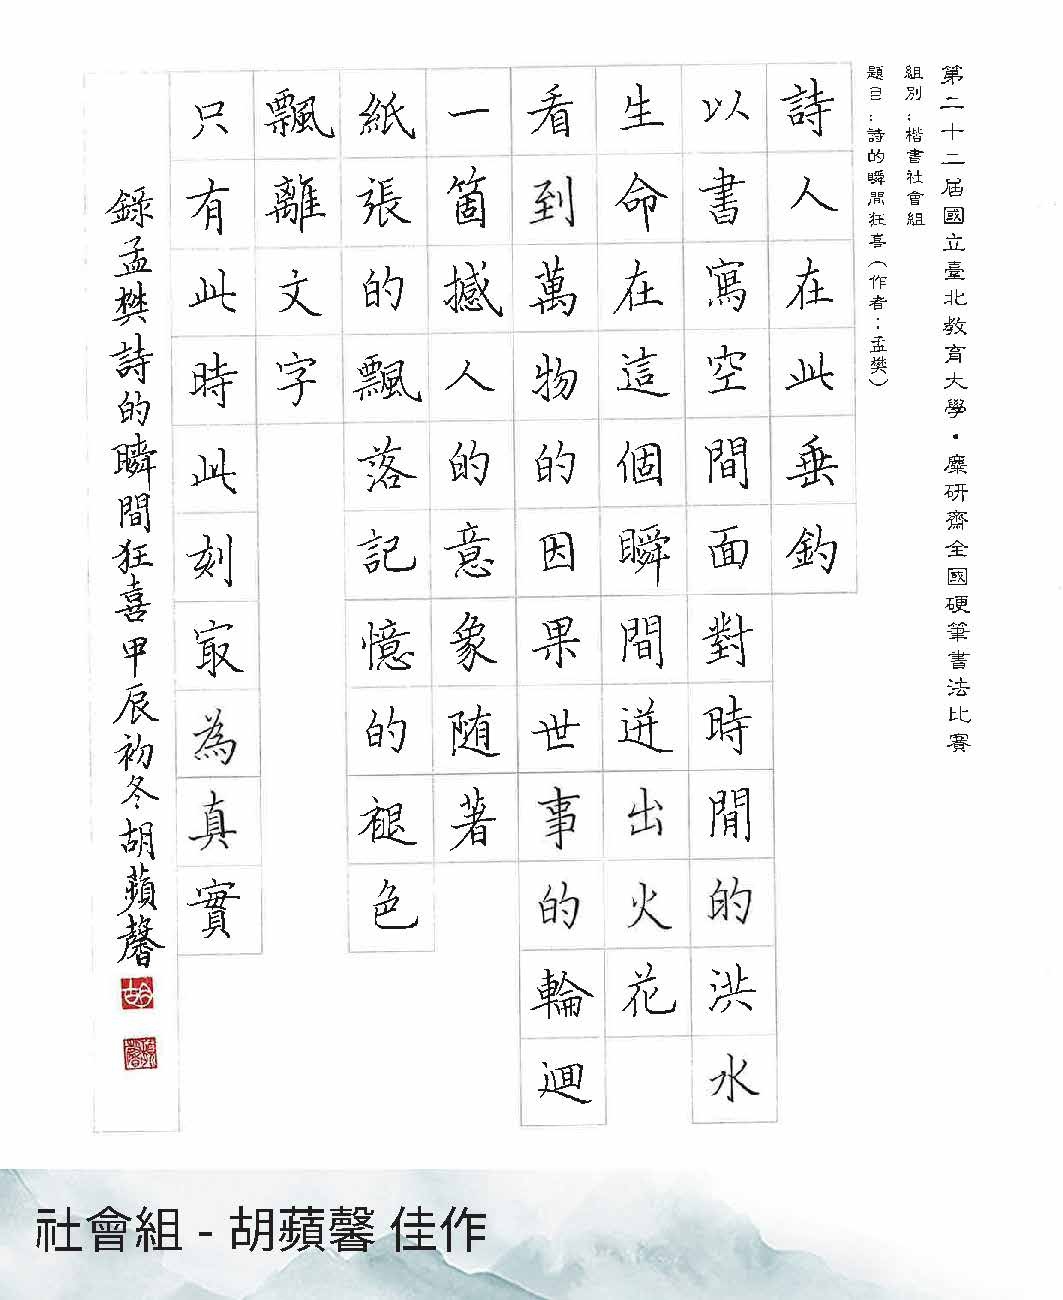 第二十二屆國立臺北教育大學・麋研齋全國硬筆書法比賽
組別：楷書社會組
題目：詩的瞬間狂喜（作者：孟樊）
詩人在此垂釣
以書寫空間面對時間的洪水
生命在這個瞬間迸出火花
看到萬物的因果世事的輪迴
一箇撼人的意象随著
紙張的飄落記憶的褪色
飄離文字
只有此時此刻㝡為真實
錄孟樊詩的瞬間狂喜甲辰初冬胡蘋馨
社會組 - 胡蘋馨 佳作